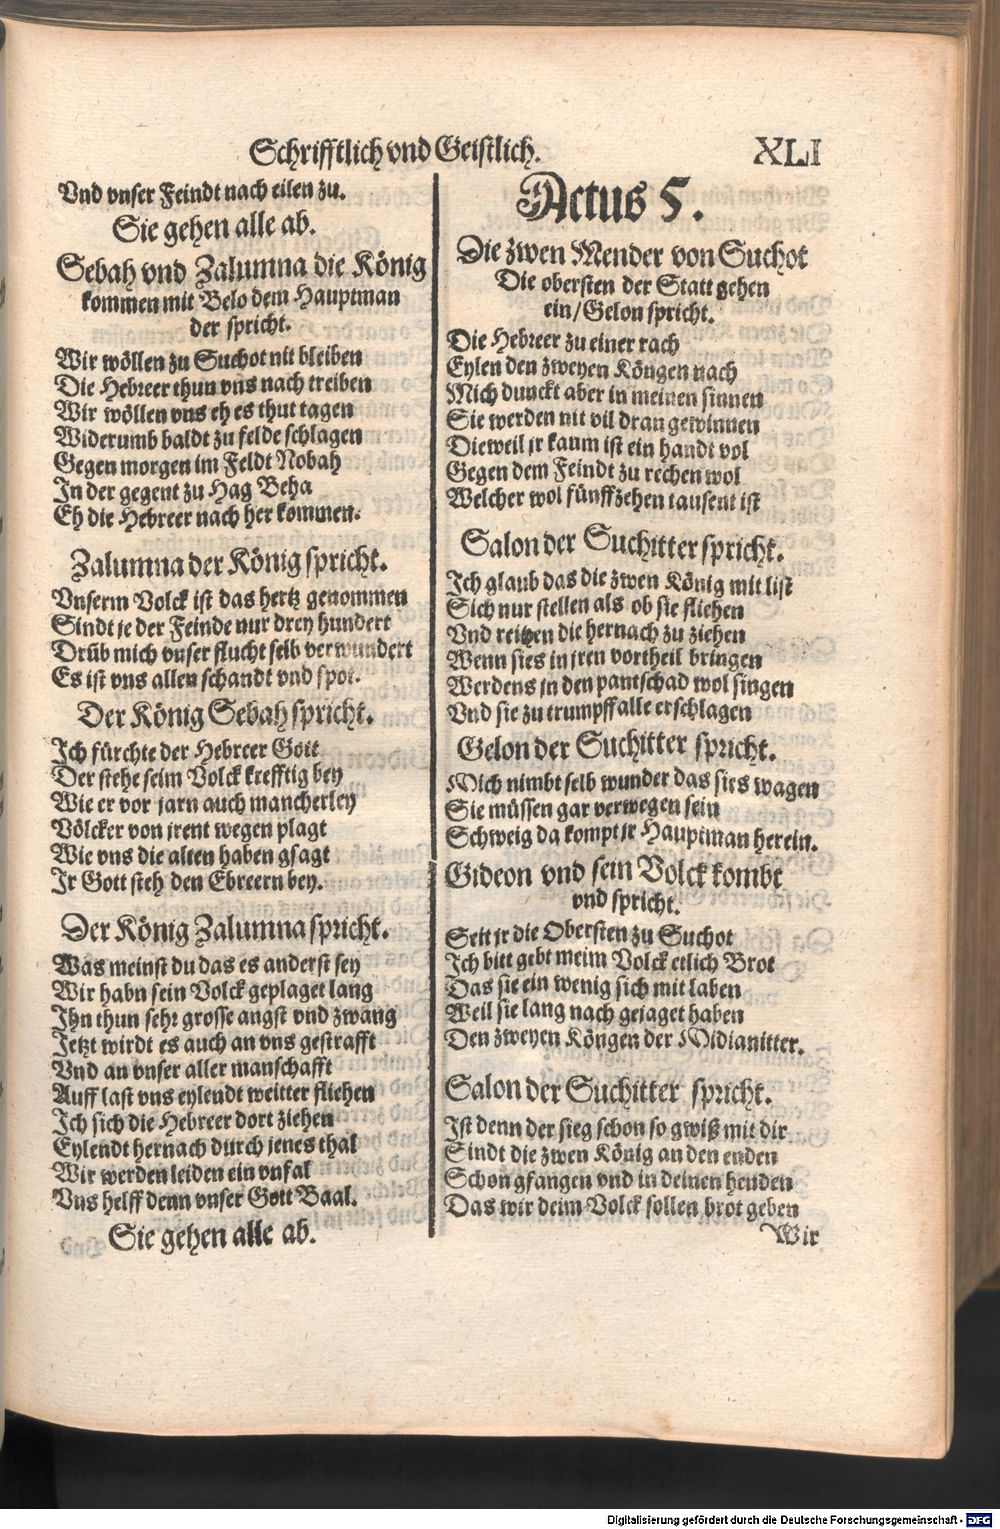 Schrifftlich vnd Geistlich. XLI
Vnd vnser Feindt nach eilen zu.
Sie gehen alle ab.
Sebah vnd Zalumna die König
kommen mit Belo dem Hauptman
der spricht.
Wir wöllen zu Suchot nit bleiben
Die Hebreer thun vns nach treiben
Wir wöllen vns eh es thut tagen
Widerumb baldt zu felde schlagen
Gegen morgen im Feldt Nobah
In der gegent zu Hag Beha
Eh die Hebreer nach her kommen.
Zalumna der König spricht.
Vnserm Volck ist das hertz genommen
Sindt je der Feinde nur drey hundert
Drüb mich vnser flucht selb verwundert
Es ist vns allen schandt vnd spot.
Der König Sebah spricht.
Ich fürchte der Hebreer Gott
Der stehe seim Volck krefftig bey
Wie er vor jarn auch mancherley
Völcker von jrent wegen plagt
Wie vns die alten haben gsagt
Ir Gott steh den Ebreern bey.
Der König Zalumna spricht.
Was meinst du das es anderst sey
Wir habn sein Volck geplaget lang
Ihn thun sehr grosse angst vnd zwang
Jetzt wirdt es auch an vns gestrafft
Vnd an vnser aller manschafft
Auff last vns eylendt weitter fliehen
Ich sich die Hebreer dort ziehen
Eylendt hernach durch jenes thal
Wir werden leiden ein vnfal
Vns helff denn vnser Gott Baal.
Sie gehen alle ab.
Actus 5.
Die zwen Mender von Suchot
Die obersten der Statt gehen
ein/Gelon spricht.
Die Hebreer zu einer rach
Eylen den zweyen Köngen nach
Mich dunckt aber in meinen sinnen
Sie werden nit vil dran gewinnen
Dieweil jr kaum ist ein handt vol
Gegen dem Feindt zu rechen wol
Welcher wol fünffzehen tausent ist
Salon der Suchitter spricht.
Ich glaub das die zwen König mit list
Sich nur stellen als ob sie fliehen
Vnd reitzen die hernach zu ziehen
Wenn sies in jren vortheil bringen
Werdens jn den pantschad wol singen
Vnd sie zu trumpff alle erschlagen
Gelon der Suchitter spricht.
Mich nimbt selb wunder das sies wagen
Sie müssen gar verwegen sein
Schweig da kompt jr Hauptman herein.
Gideon vnd sein Volck kombt
vnd spricht.
Seit jr die Obersten zu Suchot
Ich bitt gebt meim Volck etlich Brot
Das sie ein wenig sich mit laben
Weil sie lang nach gejaget haben
Den zweyen Köngen der Midianitter.
Salon der Suchitter spricht.
Ist denn der sieg schon so gwiß mit dir
Sindt die zwen König an den enden
Schon gfangen vnd in deinen henden
Das wir deim Volck sollen brot geben
Wir
Digitalisierung gefördert durch die Deutsche Forschungsgemeinschaft - DFG